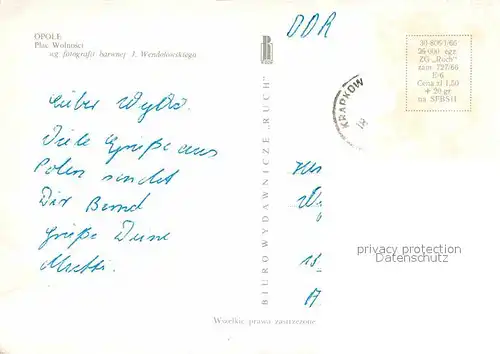 OPOLE
Plac Wolności
wg fotografii barwnej J. Wendołowskiego
DDR
30-806-1/66
ZG „Ruch"
zam 727/66
E/6
Cena zł 1,50
+ 20 gr
na SFBS11
KRAPKOW
Lieber
Viele Grüße aus
Polen sendet
Dir Bernd
Grüße Deine
BIURO WYDAWNICZE „RUCH"
privacy protection
Datenschutz
Wszelkie prawa zastrzeżone